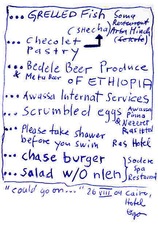 ... GRELLED Fish
(snecha)
Somy
Restaurant
Arba Minch
... Checolet
Pastry
... Bedele Beer Produce
& Meta Bar of ETHIOPIA
... Awassa Internat Services
... Scrumbled eggs
Awassa
Pinna
& Nazret
Ras Hotel
... Please take shawer
before you swim
Ras Hotel
... chase burger
... Salad w/o nlen
Sodere
Spa
Restorat
"could go on..." 26 VIII 04 Cairo,
Hotel